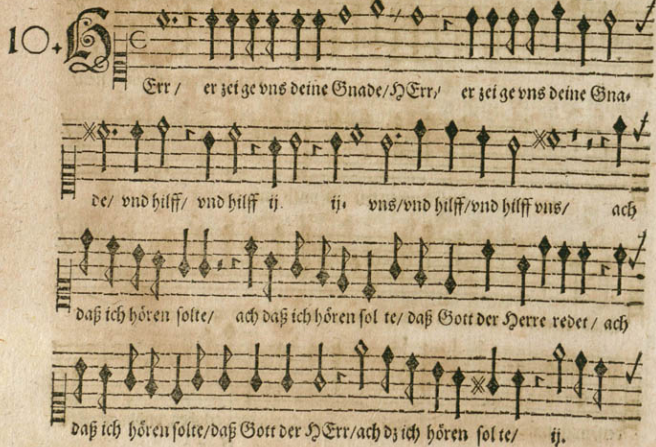 10. HErr / er zei ge vns deine Gnade/HErr/ er zei ge vns deine Gna-
de/ vnd hilff/ vnd hilff ij. ij. vns/vnd hilff/vnd hilff vns/ ach
daß ich hören solte/ ach daß ich hören sol te/ daß Gott der Herre redet / ach
daß ich hören solte/daß Gott der HErr/ach dz ich hören sol te/ ij.